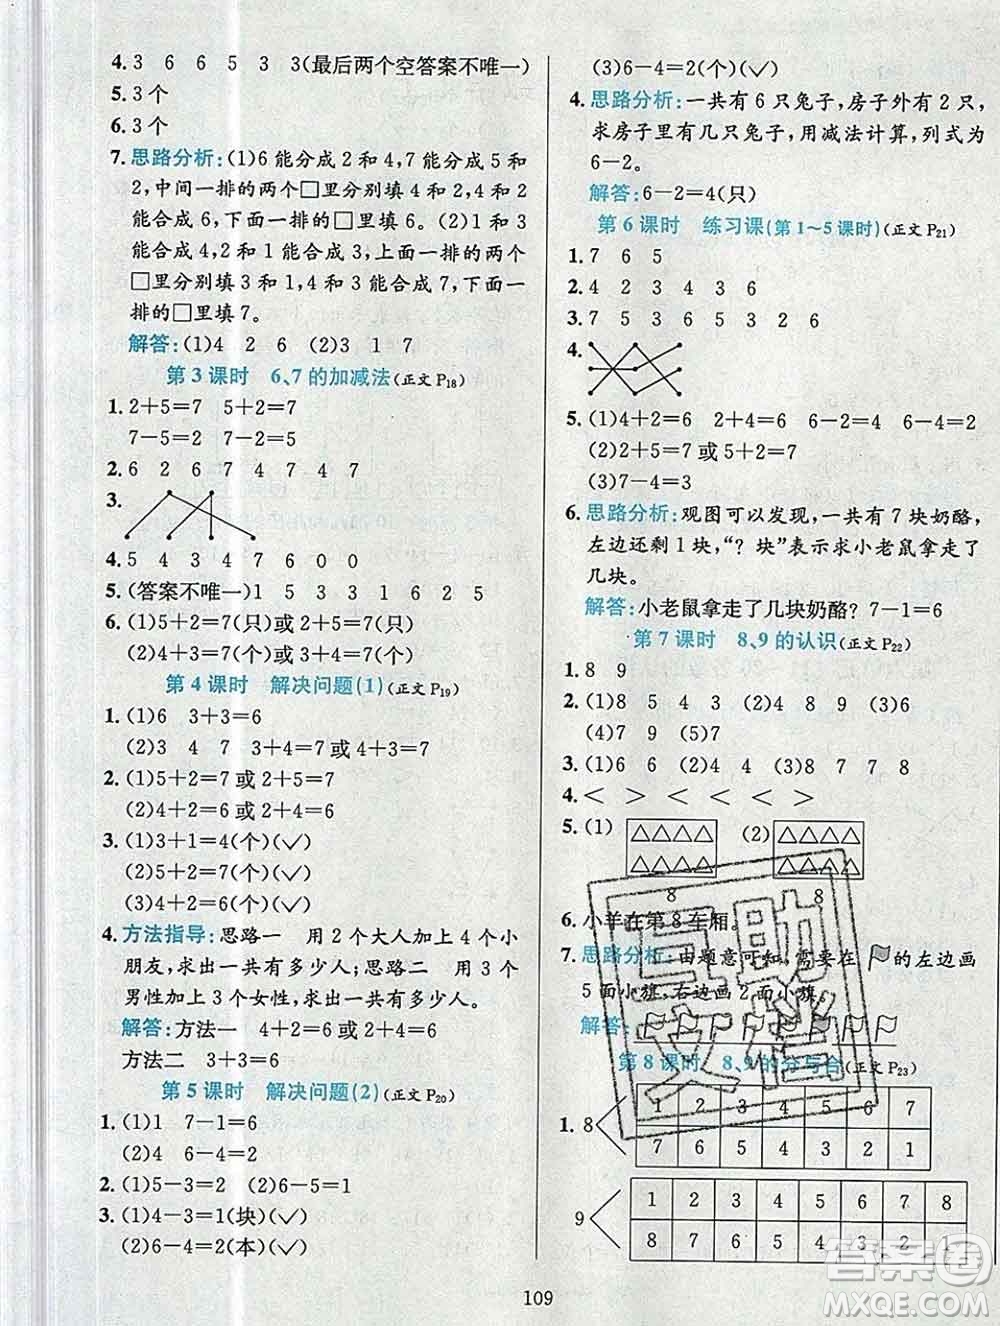 4. 3 6 6 5 3 3(最后两个空答案不唯一)
5. 3个
6. 3个
7. 思路分析:(1)6能分成2和4,7能分成5和
2,中间一排的两个□里分别填4和2,4和2
能合成6,下面一排的□里填6。(2)1和3
能合成4,2和1能合成3,上面一排的两个
□里分别填3和1,4和3能合成7,下面一
排的□里填7。
解答:(1)4 2 6 (2)3 1 7
第3课时 6、7的加减法(正文P18)
1. 2+5=7 5+2=7
7-5=2 7-2=5
2. 6 2 6 7 4 7 4 7
3.
4. 5 4 3 4 7 6 0 0
5. (答案不唯一)1 5 3 3 1 6 2 5
6. (1)5+2=7(只)或2+5=7(只)
(2)4+3=7(个)或3+4=7(个)
第4课时 解决问题(1)(正文P19)
1. (1)6 3+3=6
(2)3 4 7 3+4=7或4+3=7
2. (1)5+2=7或2+5=7
(2)4+2=6或2+4=6
3. (1)3+1=4(个)(✓)
(2)5+2=7(个)(✓)
(3)4+3=7(个)(✓)
4. 方法指导:思路一 用2个大人加上4个小
朋友,求出一共有多少人;思路二 用3个
男性加上3个女性,求出一共有多少人。
解答:方法一 4+2=6或2+4=6
方法二 3+3=6
第5课时 解决问题(2)(正文P20)
1. (1)1 7-1=6
(2)4 6-4=2
2. (1)5-3=2 (2)6-5=1
3. (1)4-3=1(块)(✓)
(2)6-4=2(本)(✓)
(3)6-4=2(个)(✓)
4. 思路分析:一共有6只兔子,房子外有2只,
求房子里有几只兔子,用减法计算,列式为
6-2。
解答:6-2=4(只)
第6课时 练习课(第1~5课时)(正文P21)
1. 7 6 5
2. 4 2 3 4 3 6
3. 7 5 3 6 5 3 2 6
4.
5. (1)4+2=6 2+4=6 6-2=4 6-4=2
(2)2+5=7或5+2=7
(3)7-4=3
6. 思路分析:观图可以发现,一共有7块奶酪,
左边还剩1块,“?块”表示求小老鼠拿走了
几块。
解答:小老鼠拿走了几块奶酪?7-1=6
第7课时 8、9的认识(正文P22)
1. 8 9
2. (1)8 5 4 3 (2)4 8 9 (3)6
(4)7 9 (5)7
3. (1)6 6 (2)4 4 (3)8 7 7 8
4. < > < > < >
5. (1) (2)
8 8
6. 小羊在第8车厢。
7. 思路分析:由题意可知,需要在 的左边画
5面小旗,右边画2面小旗。
解答:
第8课时 8、9的分与合(正文P23)
1. 8 1 2 3 4 5 6 7
7 6 5 4 3 2 1
9 1 2 3 4 5 6 7 8
8 7 6 5 4 3 2 1
109
答案圈
MXQE.COM